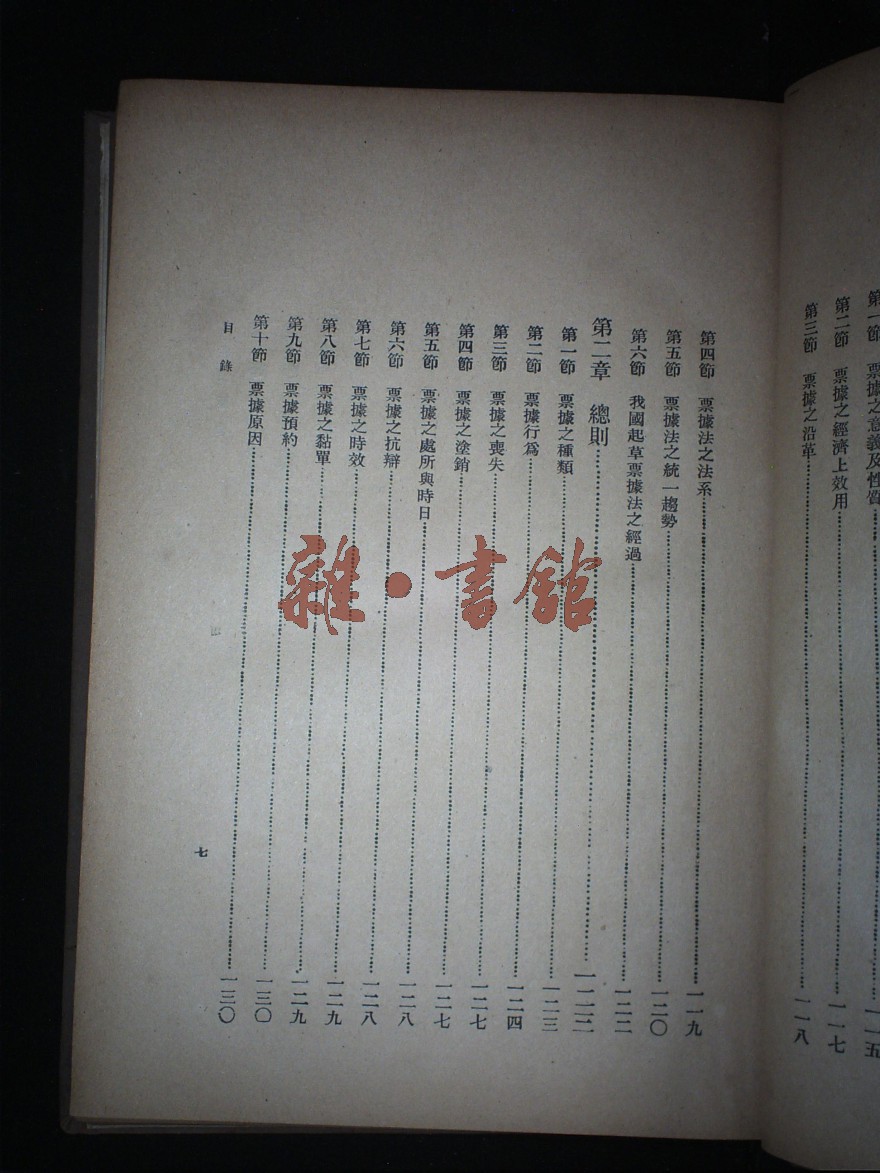 第一節 票據之意義及性質……一一五
第二節 票據之經濟上效用……一一七
第三節 票據之沿革……一一八
第四節 票據法之法系……一一九
第五節 票據法之統一趨勢……一二〇
第六節 我國起草票據法之經過……一二二
第二章 總則……一二三
第一節 票據之種類……一二三
第二節 票據行為……一二四
第三節 票據之喪失……一二七
第四節 票據之塗銷……一二七
第五節 票據之處所與時日……一二八
第六節 票據之抗辯……一二八
第七節 票據之時效……一二九
第八節 票據之黏單……一二九
第九節 票據預約……一三〇
第十節 票據原因……一三〇
目錄
七
雜·書館